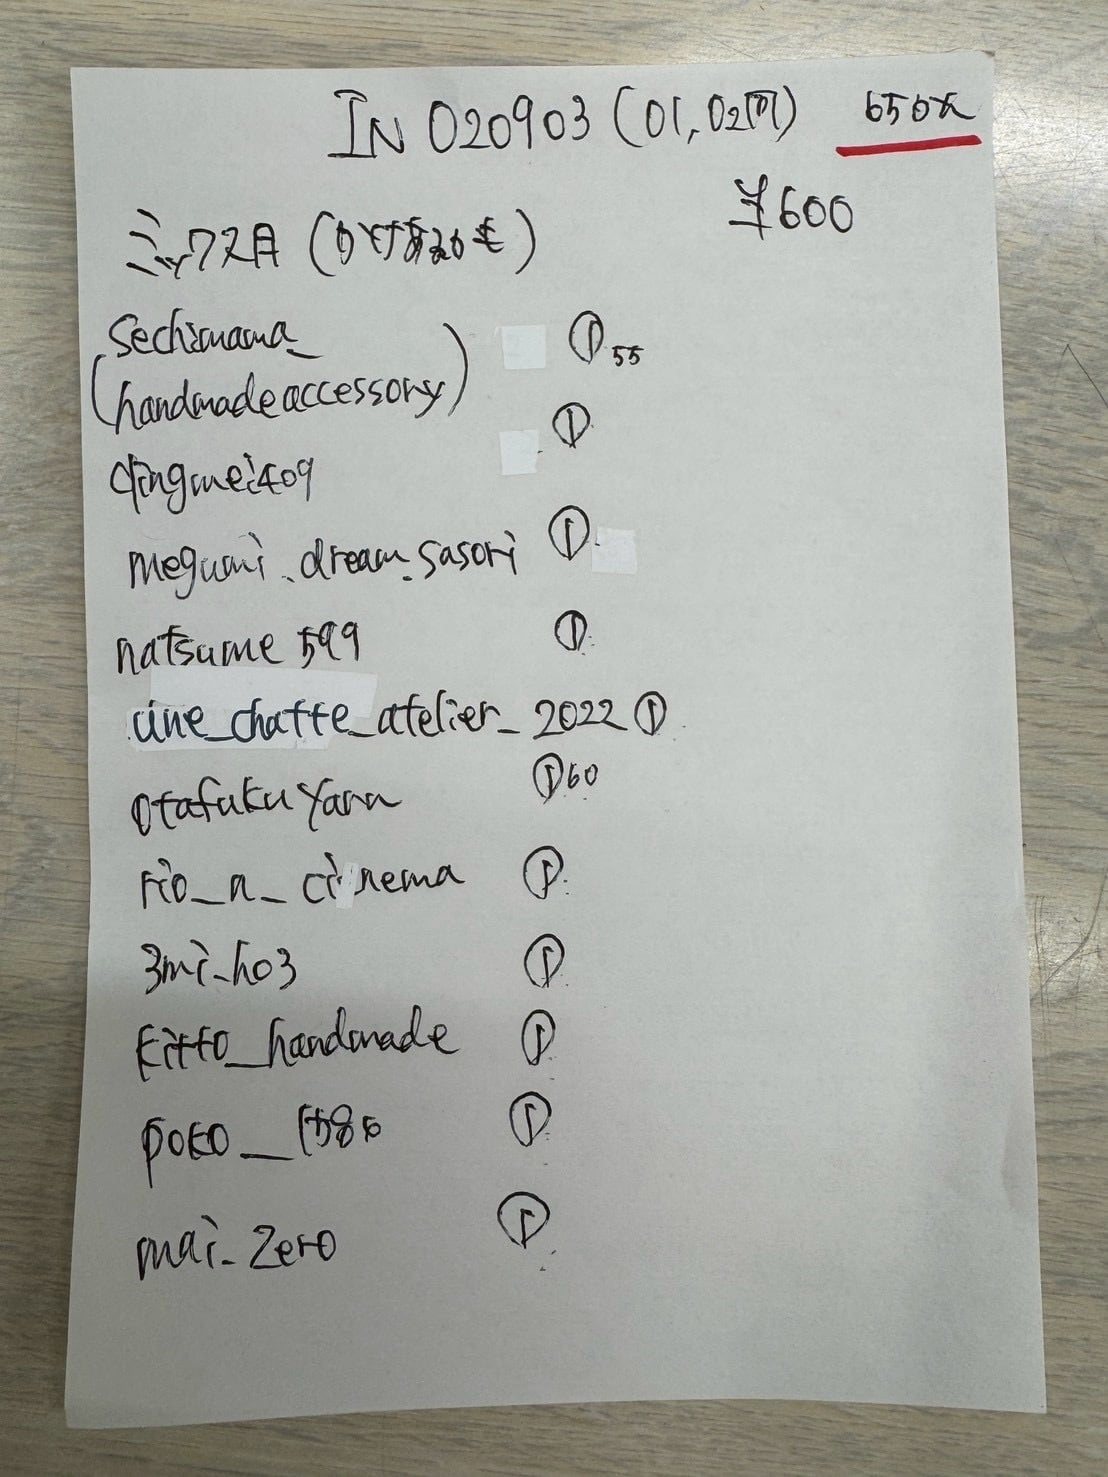 IN 020903 (01,02同) 650天
¥600
ミックス月
Sechimama_ ① 55
(handmadeaccessory)
qingmei409 ①
megumi.dream.sasori ①
natsume599 ①
cine_chatte_atelier_2022 ①
otafukuyann ① 60
rio_a_cinema ①
3mi_ho3 ①
kitto_handmade ①
poko__1580 ①
mai_zero ①